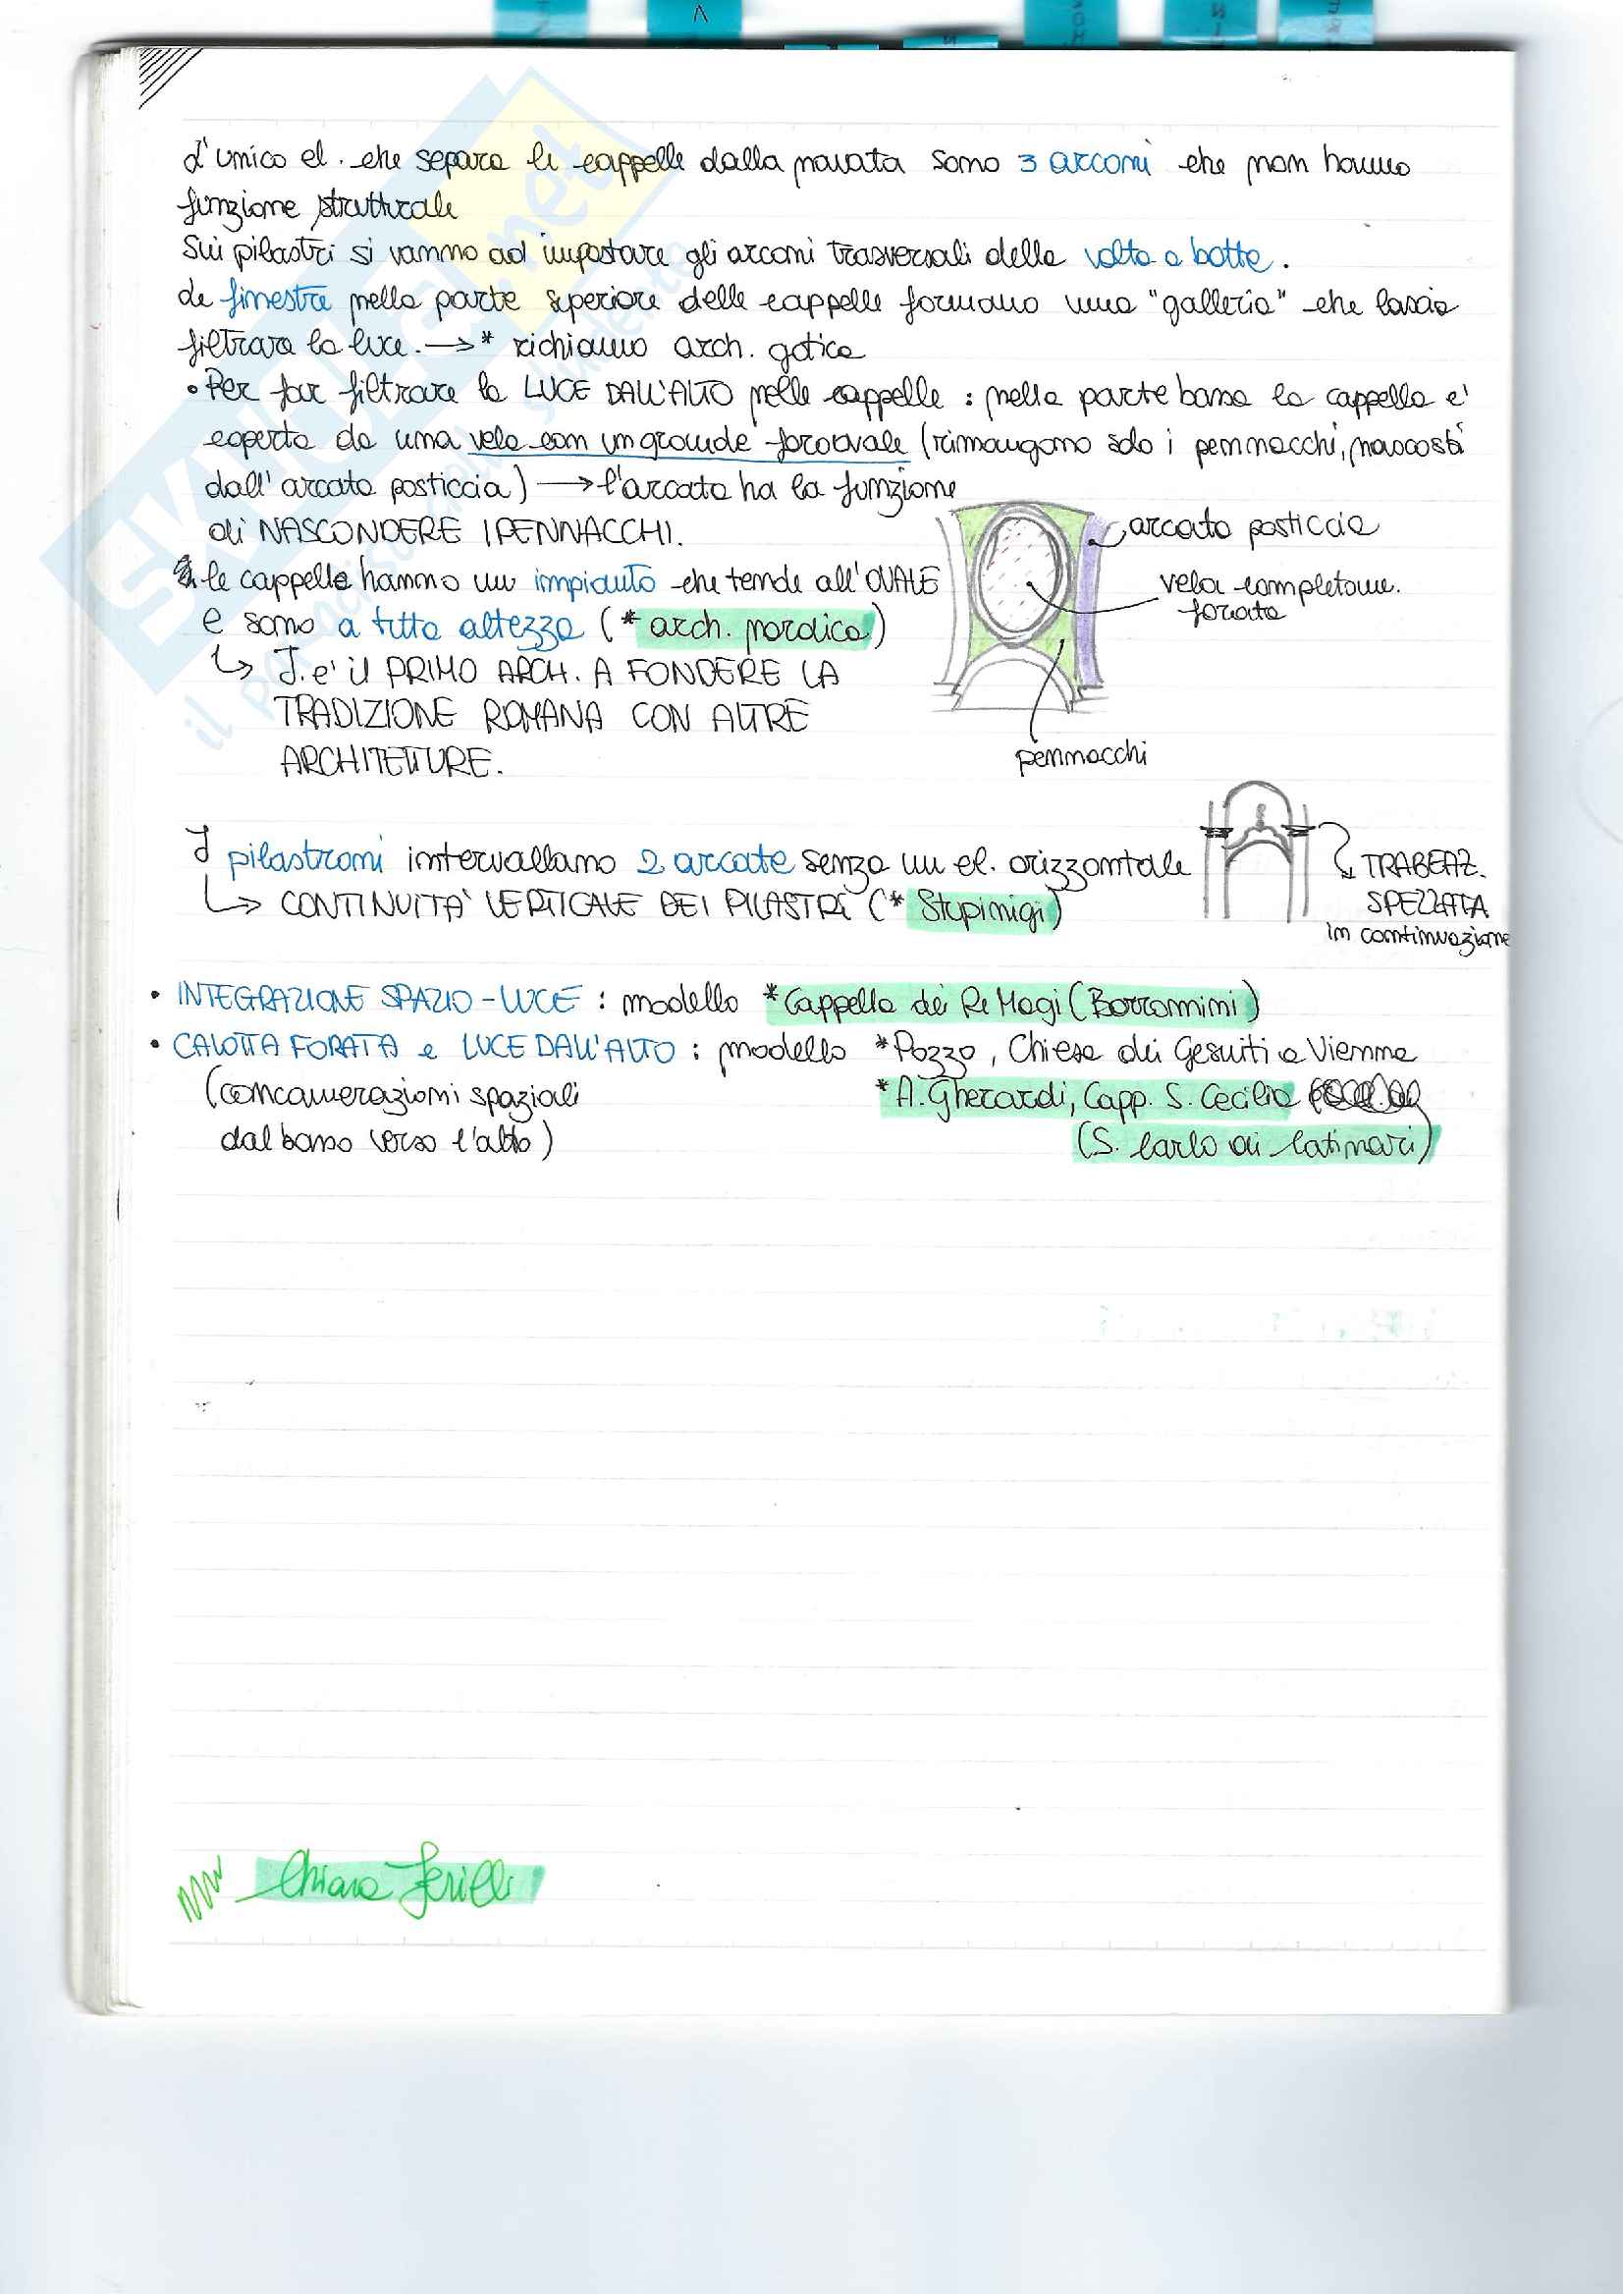 L'unico el. che separa le cappelle dalla navata sono 3 arconi che non hanno
funzione strutturale
Sui pilastri si vanno ad impostare gli arconi trasversali della volta a botte.
Le finestre nella parte superiore delle cappelle formano una "galleria" che lascia
filtrare la luce. → * richiamo arch. gotica
• Per far filtrare la LUCE DALL'ALTO nelle cappelle : nella parte bassa la cappella e'
coperta da una vela con un grande foro ovale (rimangono solo i pennacchi, nascosti
dall'arcata posticcia) → l'arcata ha la funzione
di NASCONDERE I PENNACCHI.
arcata posticcia
le cappelle hanno un impianto che tende all'OVALE
vela completam.
forata
e sono a tutta altezza (* arch. nordica)
↳ J. e' il PRIMO ARCH. A FONDERE LA
TRADIZIONE ROMANA CON ALTRE
ARCHITETTURE.
pennacchi
I pilastroni intervallano 2 arcate senza un el. orizzontale
↳ CONTINUITA' VERTICALE DEI PILASTRI (* Stupinigi)
TRABEAZ.
SPEZZATA
in continuazione
• INTEGRAZIONE SPAZIO-LUCE : modello * Cappella dei Re Magi (Borromini)
• CALOTTA FORATA e LUCE DALL'ALTO : modello * Pozzo, Chiesa dei Gesuiti a Vienna
(concamerazioni spaziali
dal basso verso l'alto)
* A. Gherardi, Capp. S. Cecilia
(S. Carlo ai Catinari)
Chiara Ferilli
SKUOLA.net
il paradiso dello studente